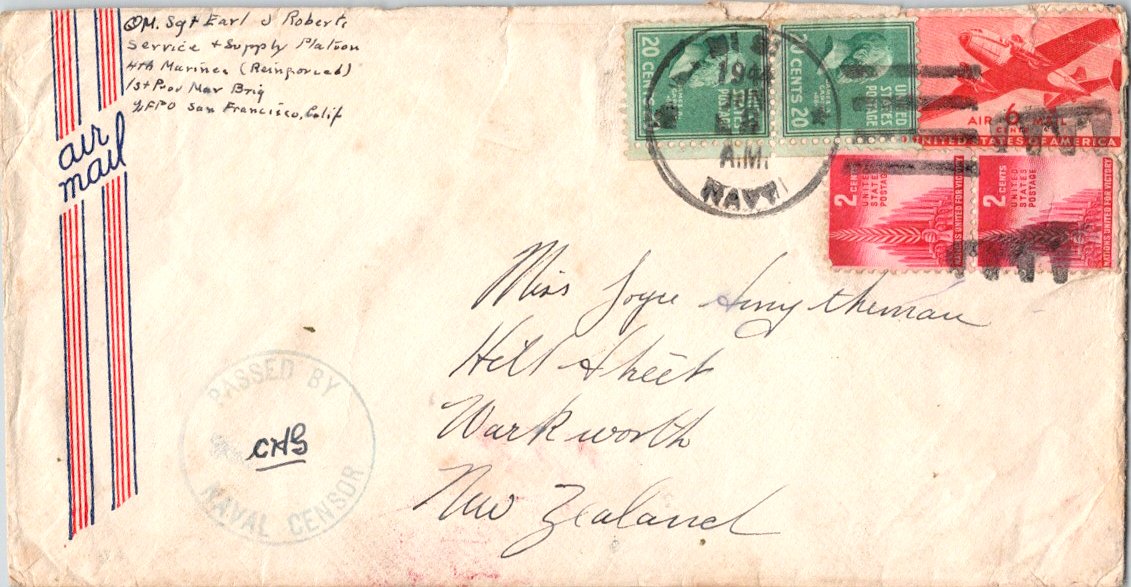 QM. Sgt Earl J Roberts
Service + Supply Platoon
4th Marines (Reinforced)
1st Prov Mar Brig
℅ FPO San Francisco, Calif
air
mail
20 CENTS
UNITED
STATES
POSTAGE
20 CENTS 20
UNITED
STATES
POSTAGE
AIR 6 MAIL
CENTS
UNITED STATES OF AMERICA
1944
JUN
A.M.
NAVY
2 CENTS
UNITED
STATES
POSTAGE
NATIONS UNITED FOR VICTORY
2 CENTS
UNITED
STATES
POSTAGE
NATIONS UNITED FOR VICTORY
Miss Joyce
Street
Warkworth
New Zealand
PASSED BY
CHS
NAVAL CENSOR